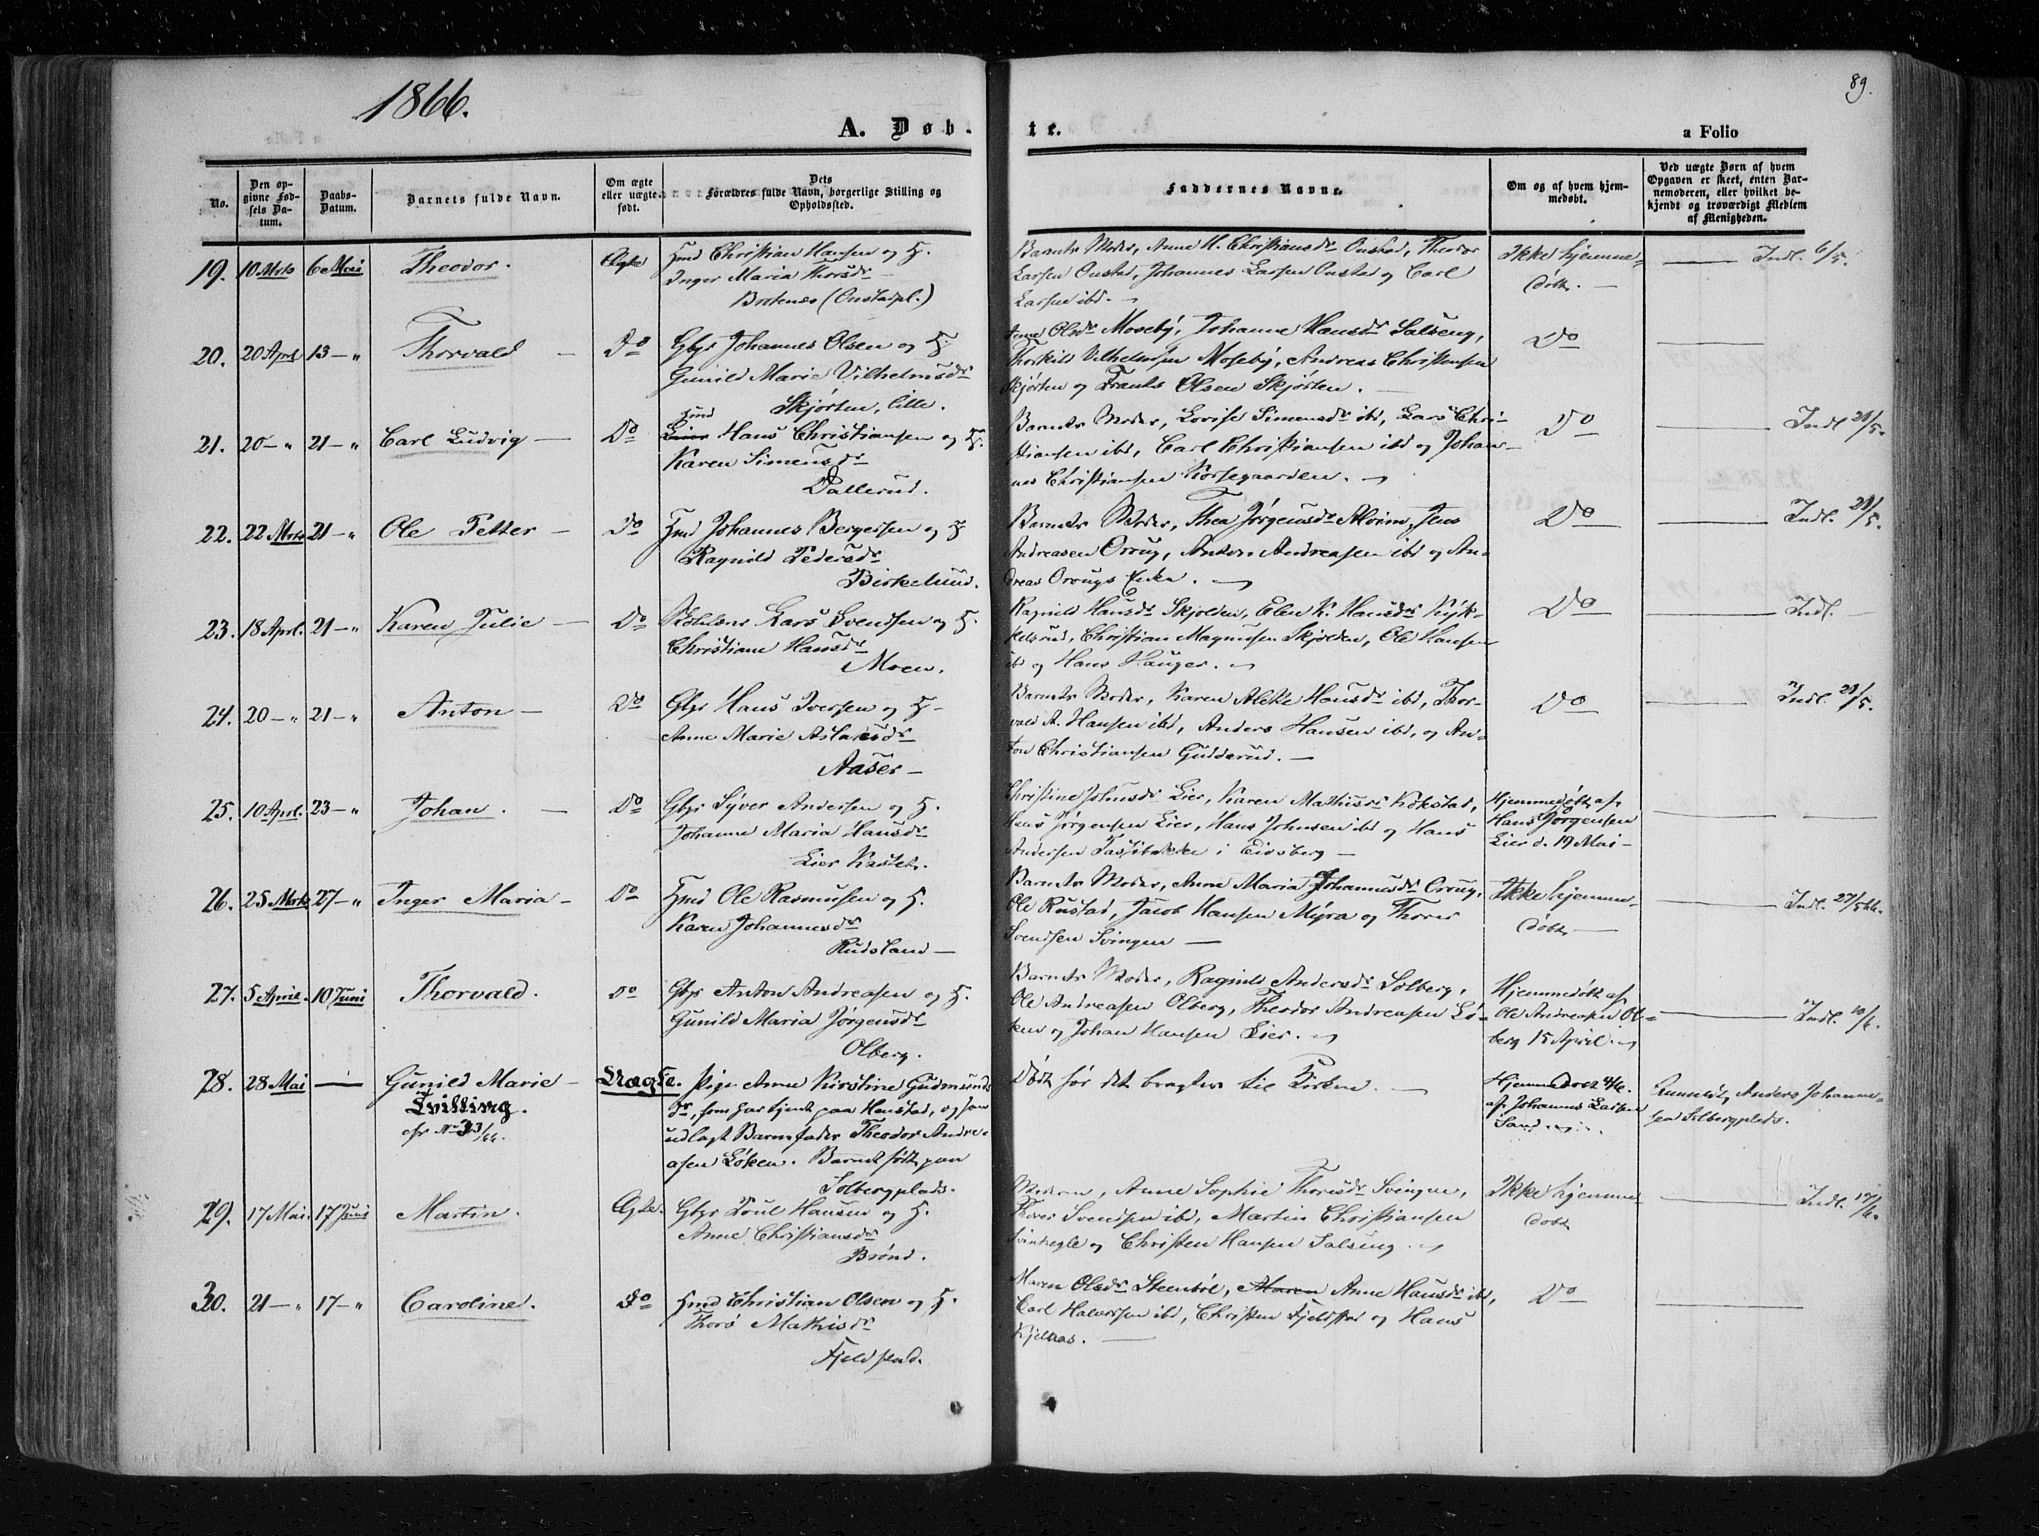 1866.
89.
A. Døb-
te.
a Folio
No.
Den op-
givne Fød-
sels Da-
tum.
Daabs-
Datum.
Barnets fulde Navn.
Om ægte
eller uægte
født.
Dets
Forældres fulde Navn, borgerlige Stilling og
Opholdssted.
Faddernes Navne.
Om og af hvem hjem-
medøbt.
Ved uægte Børn af hvem
Opgaven er skeet, enten Bar-
nemoderen, eller hvilket be-
kjendt og troværdigt Medlem
af Menigheden.
19. 10 Mrts 6 Mai Theodor. Ægte
Hmd Christian Hansen og H.
Inger Maria Thorsdr
Brotenes (Onstadpl.)
Barnets Moder, Anne M. Christiansdr Onstad, Theodor
Larsen Onstad, Johannes Larsen Onstad og Carl
Larsen ibd.
Ikke hjemme-
døbt.
Indl. 6/5.
20. 20 Aprl 13 — " Thorvald — Do
Gbr Johannes Olsen og H.
Gunild Marie Vilhelmsdr
Skjørten, lille.
Anne Olsdr Moseby, Johanne Hansdr Salseng,
Thorkild Vilhelmsen Moseby, Andreas Christensen
Skjørten og Frants Olsen Skjørten.
Do
21. 20 — " 21 — " Carl Ludvig — Do
Hmd
Hans Christiansen og H.
Karen Simensdr
Dallerud.
Barnets Moder, Lovise Simensdr ibd, Lars Chri-
stiansen ibd, Carl Christiansen ibd og Johan-
nes Christiansen Korsegaarden.
Do
Indl 21/5.
22. 22 Mrts 21 — " Ole Petter — Do
Hmd Johannes Bergersen og H
Ragnild Pedersdr
Birkelund.
Barnets Moder, Thea Jørgensdr Morim, Jens
Andreasen Orrug, Anton Andreasen ibd og An-
dreas Orrugs Enke.
Do
Indl. 21/5.
23. 18 Aprl. 21 — " Karen Julie — Do
Lars Svendsen og H.
Christiane Hansdr
Moen.
Ragnild Hansdr Skjolden, Elen K. Hansdr Kyk-
kelsrud, Christian Magnusen Skjolden, Ole Hansen
ibd og Hans Hauger.
Do
Indl. —
24. 20 — " 21 — " Anton — Do
Gbr Hans Iversen og H —
Anne Marie Aslaksdr
Aaser —
Barnets Moder, Karen Aleke Hansdr ibd, Thor-
vald A. Hansen ibd, Anders Hansen ibd, og An-
ton Christiansen Gudderud. —
Do
Indl. 21/5.
25. 10 Aprl. 23 — " Johan. — Do
Gbr Syver Andersen og H.
Johanne Maria Hansdr
Lier Kastet.
Christine Johnsdr Lier, Karen Mathisdr Kokstad,
Hans Jørgensen Lier, Hans Johnsen ibd og Hans
Andersen Tassibakke i Eidsberg —
Hjemmedøbt af
Hans Jørgensen
Lier d. 19 Mai —
26. 25 Mrts 27 — " Inger Maria — Do
Hmd Ole Rasmusen og H.
Karen Johannesdr
Rudsland —
Barnets Moder, Anne Maria Johannesdr Orrug,
Ole Rustad, Jacob Hansen Myra og Thorer
Svendsen Svingen —
Ikke hjemme-
døbt
Indl. 27/5 66.
27. 5 April. 10 Juni Thorvald. Do
Gbr Anton Andreasen og H.
Gunild Maria Jørgensdr
Olberg.
Barnets Moder, Ragnild Andersdr Solberg,
Ole Andreasen Olberg, Theodor Andreasen Lø-
ken og Johan Hansen Lier.
Hjemmedøbt af
Ole Andreasen Ol-
berg 15 April.
Indl. 10/6.
28. 28 Mai — Gunild Marie — Uægte.
Tvilling.
cfr No 33/66.
Pige Anne Kirstine Gudmunds-
dr, som har tjent paa Henstad, og som
udlagt Barnefader Theodor Andre-
asen Løken. Barnet født paa
Solbergplads.
Død før det bragtes til Kirken. —
Hjemmedøbt
af Johannes Larsen
Sand.
Anmeldt, Anders Johanne-
sen Solbergplads.
29. 17 Mai. 17 Juni Martin. Ægte.
Gbr Poul Hansen og H.
Anne Christiansdr
Brønd.
Moderen, Anne Sophie Thoresdr Svingen,
Thorer Svendsen ibd, Martin Christiansen
Svinkegle og Christen Hansen Salseng.
Ikke hjemme-
døbt
Indl. 17/6.
30. 21 — " 17 — " Caroline. Do
Hmd Christian Olsen og H.
Thorø Mathisdr
Fjeldstad.
Maren Olsdr Steenbøl, Maren Anne Hansdr ibd,
Carl Halvorsen ibd, Christen Fjeldstad og Hans
Kjelaas. —
Do